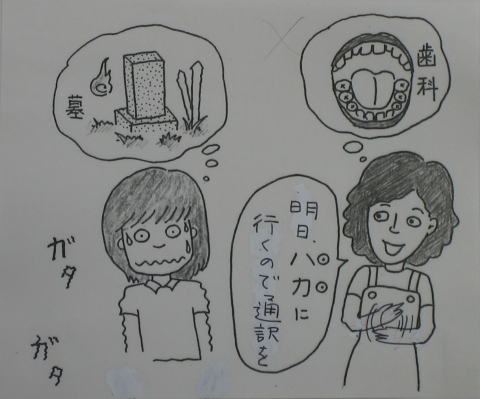 歯科
墓
明日、ハカに
行くので通訳を
ガタ
ガタ